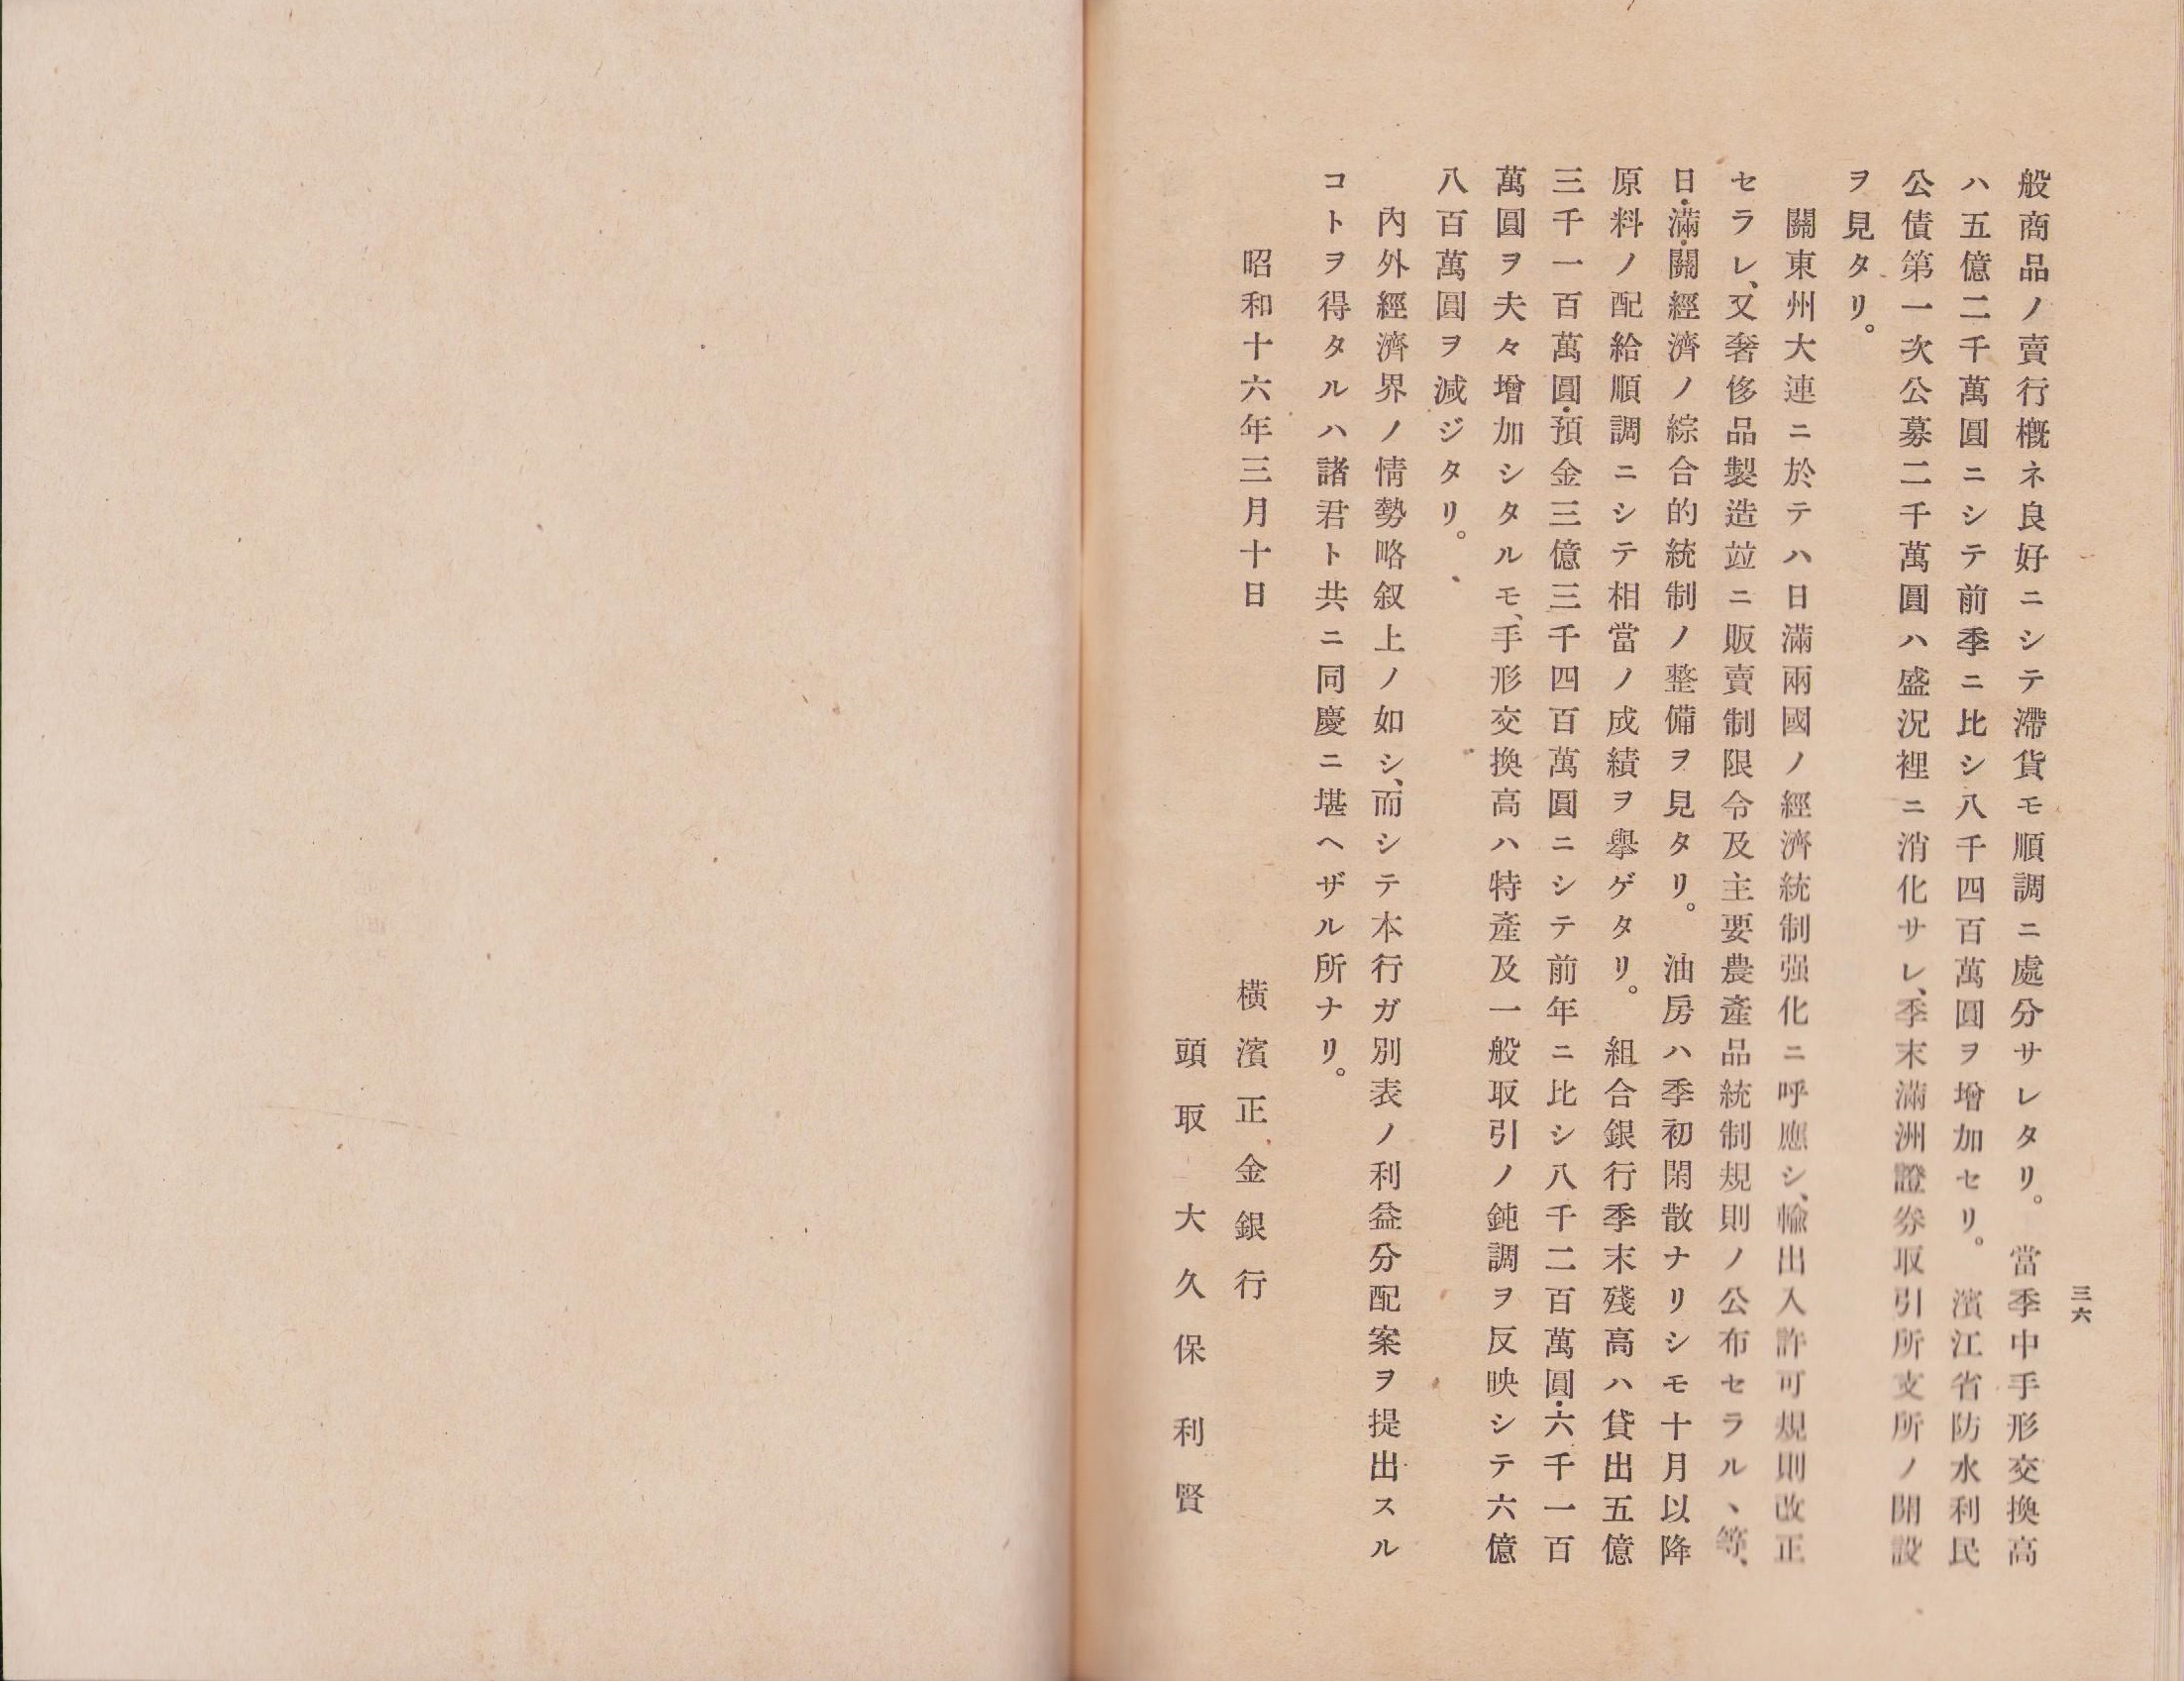 三六
般商品ノ賣行槪ネ良好ニシテ滯貨モ順調ニ處分サレタリ。　當季中手形交換高
ハ五億二千萬圓ニシテ前季ニ比シ八千四百萬圓ヲ增加セリ。　濱江省防水利民
公債第一次公募二千萬圓ハ盛況裡ニ消化サレ、季末滿洲證券取引所支所ノ開設
ヲ見タリ。
關東州大連ニ於テハ日滿兩國ノ經濟統制强化ニ呼應シ、輸出入許可規則改正
セラレ、又奢侈品製造竝ニ販賣制限令及主要農產品統制規則ノ公布セラルヽ等、
日・滿・關經濟ノ綜合的統制ノ整備ヲ見タリ。　油房ハ季初閑散ナリシモ十月以降
原料ノ配給順調ニシテ相當ノ成績ヲ擧ゲタリ。　組合銀行季末殘高ハ貸出五億
三千一百萬圓・預金三億三千四百萬圓ニシテ前年ニ比シ八千二百萬圓・六千一百
萬圓ヲ夫々增加シタルモ、手形交換高ハ特產及一般取引ノ鈍調ヲ反映シテ六億
八百萬圓ヲ減ジタリ。
內外經濟界ノ情勢略叙上ノ如シ、而シテ本行ガ別表ノ利益分配案ヲ提出スル
コトヲ得タルハ諸君ト共ニ同慶ニ堪ヘザル所ナリ。
昭和十六年三月十日
橫濱正金銀行
頭取　大久保利賢